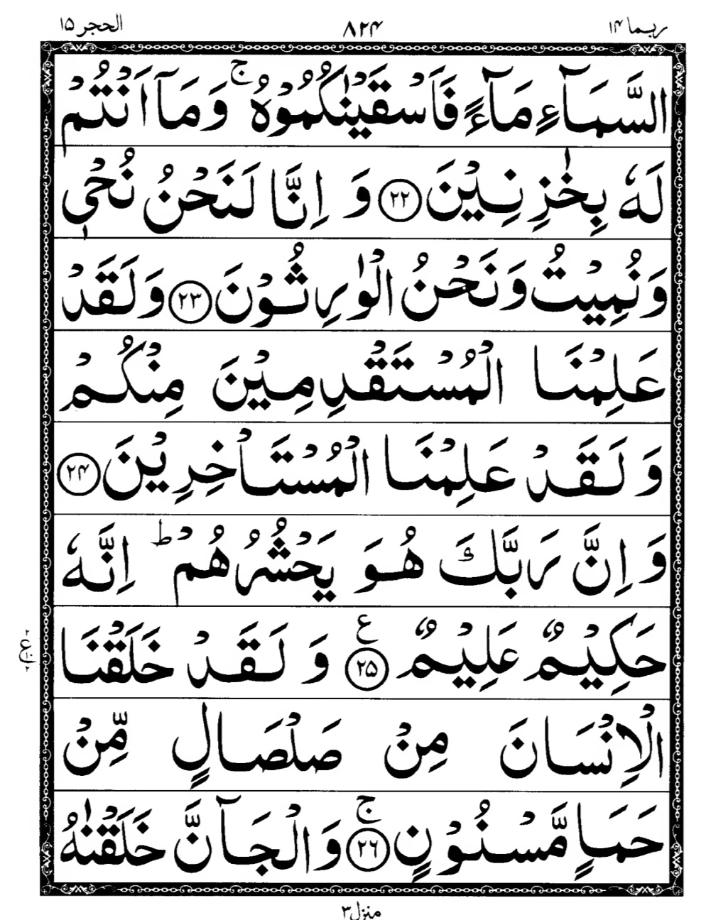 ربما ۱۴ ۸۲۴ الحجر ۱۵
السَّمَآءِ مَآءً فَاَسْقَيْنٰكُمُوْهُ ۚ وَمَاۤ اَنْتُمْ
لَهٗ بِخٰزِنِيْنَ ﴿۲۲﴾ وَ اِنَّا لَنَحْنُ نُحْيٖ
وَنُمِيْتُ وَنَحْنُ الْوٰرِثُوْنَ ﴿۲۳﴾ وَلَقَدْ
عَلِمْنَا الْمُسْتَقْدِمِيْنَ مِنْكُمْ
وَ لَقَدْ عَلِمْنَا الْمُسْتَاْخِرِيْنَ ﴿۲۴﴾
وَ اِنَّ رَبَّكَ هُوَ يَحْشُرُهُمْ ؕ اِنَّهٗ
حَكِيْمٌ عَلِيْمٌ ﴿۲۵﴾ ع وَ لَقَدْ خَلَقْنَا
الْاِنْسَانَ مِنْ صَلْصَالٍ مِّنْ
حَمَاٍ مَّسْنُوْنٍ ﴿۲۶﴾ ۚ وَالْجَآنَّ خَلَقْنٰهُ
منزل ۳